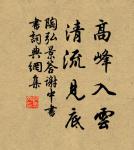 高峰入雲
清流見底
陶弘景答謝中書
書詞典網集